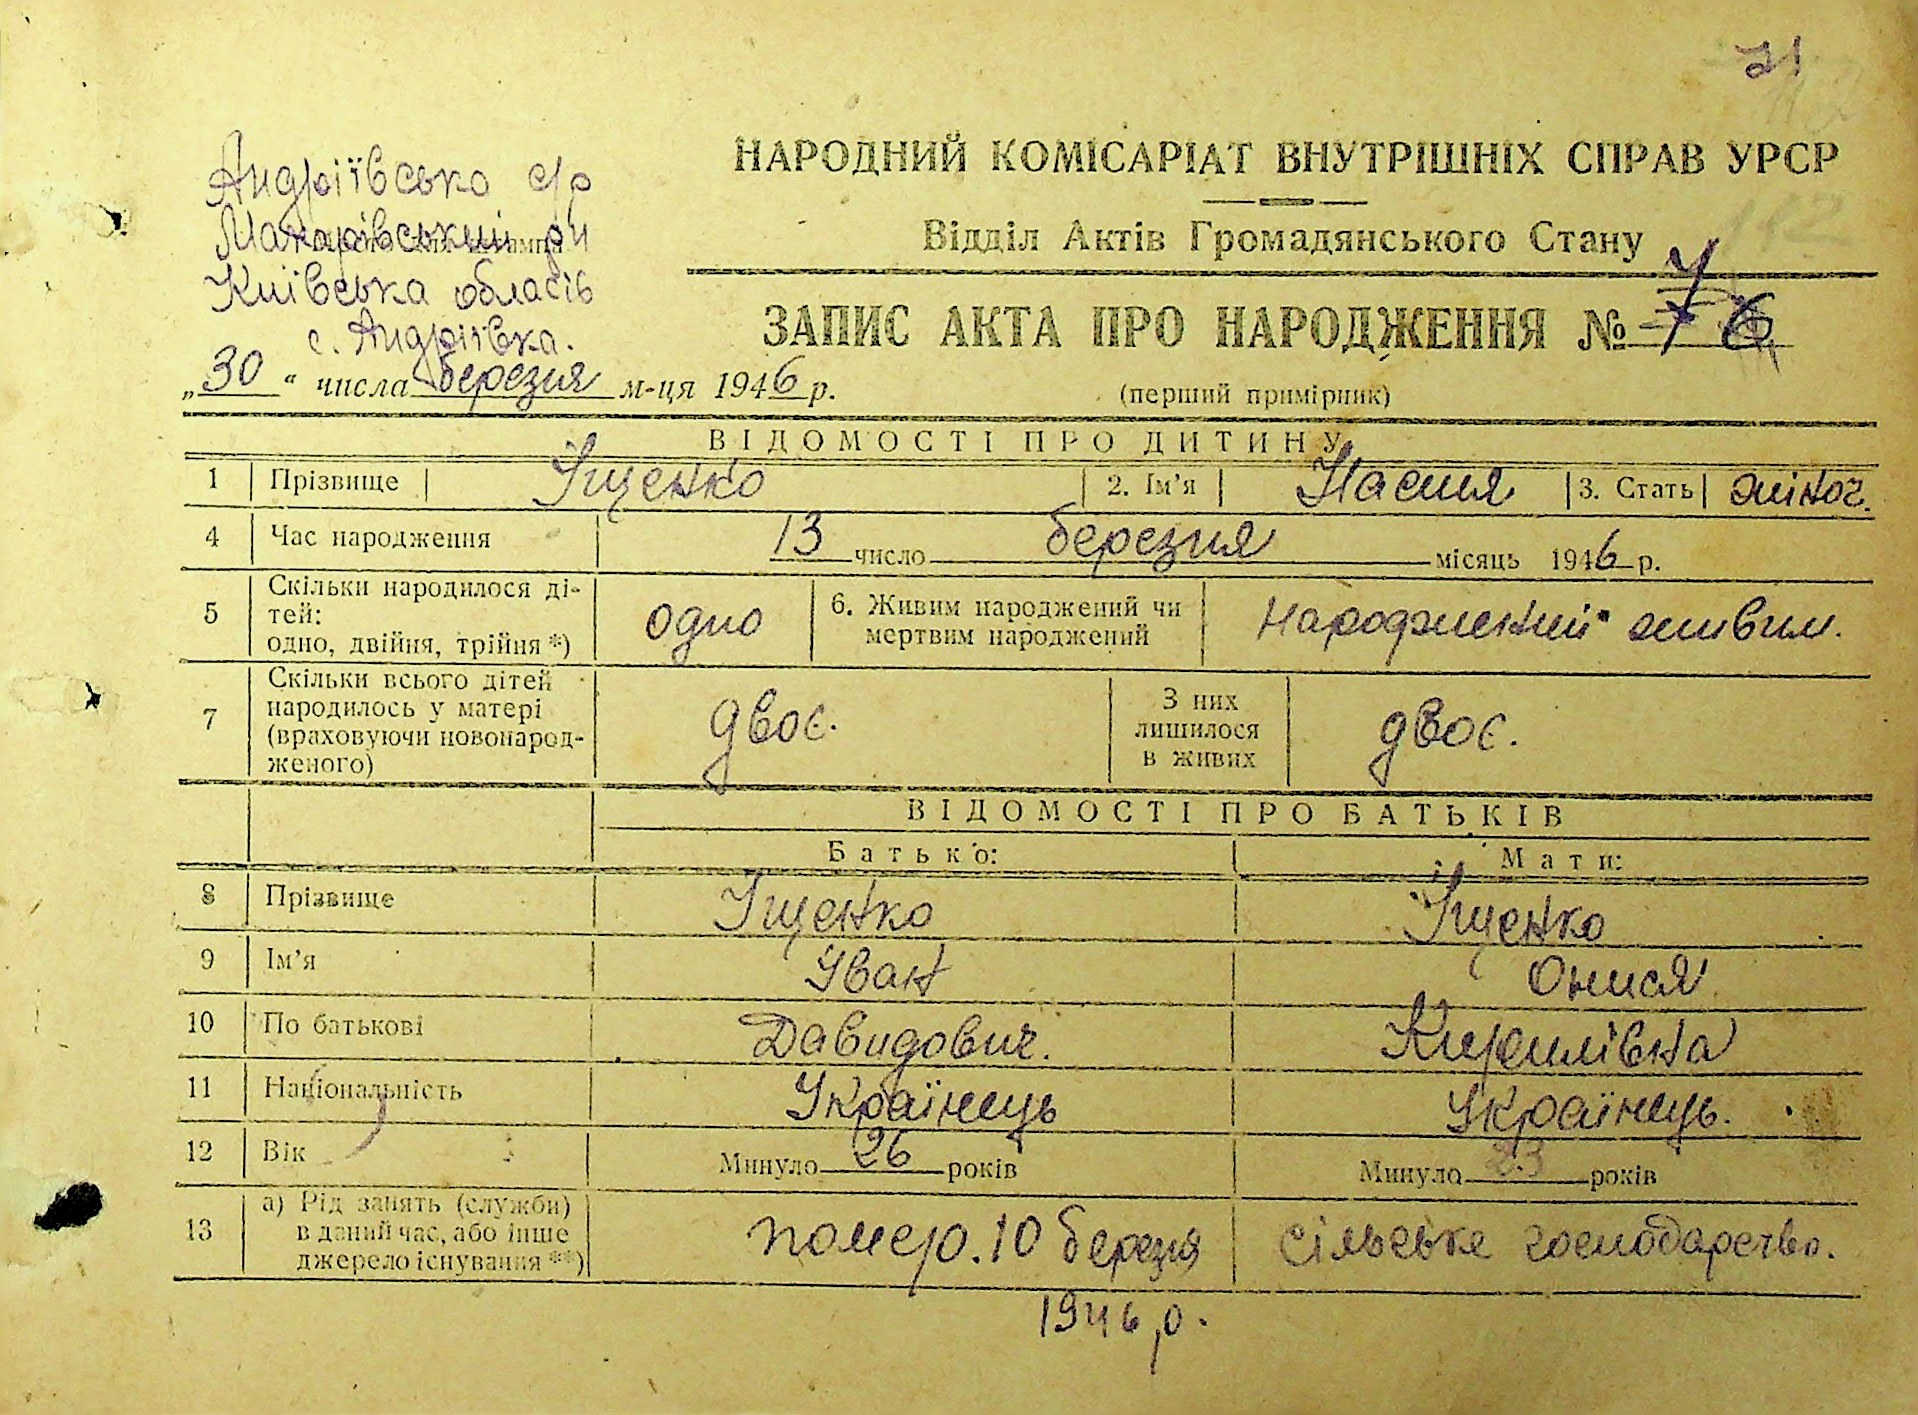 21
Андріївсько с/р
Макарівський р-н
Київська область
с. Андріївка.
НАРОДНИЙ КОМІСАРІАТ ВНУТРІШНІХ СПРАВ УРСР
Відділ Актів Громадянського Стану
ЗАПИС АКТА ПРО НАРОДЖЕННЯ №
„30“ числа березня м-ця 1946 р.
(перший примірник)
ВІДОМОСТІ ПРО ДИТИНУ
1 Прізвище Іщенко 2. Ім’я Настя 3. Стать жіноч.
4 Час народження 13 число березня місяць 1946 р.
5 Скільки народилося ді-
тей:
одно, двійня, трійня *) одно 6. Живим народжений чи
мертвим народжений народжений живим.
7 Скільки всього дітей
народилось у матері
(враховуючи новонарод-
женого) двоє. З них
лишилося
в живих двоє.
ВІДОМОСТІ ПРО БАТЬКІВ
Батько: Мати:
8 Прізвище Іщенко Іщенко
9 Ім’я Іван Онися
10 По батькові Давидович. Кирилівна
11 Національність Українець Українець.
12 Вік Минуло 26 років Минуло 23 років
13 а) Рід занять (служби)
в даний час, або інше
джерело існування **) помер. 10 березня сільське господарство.
1946 р.